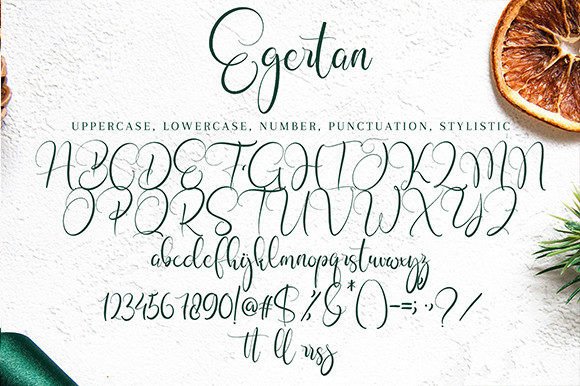 Egertan
UPPERCASE, LOWERCASE, NUMBER, PUNCTUATION, STYLISTIC
ABCDEFGHIJKLMN
OPQRSTUVWXYZ
abcdefghijklmnopqrstuvwxyz
1234567890!@#$%&*()-=;.,?/
tt ll rrss